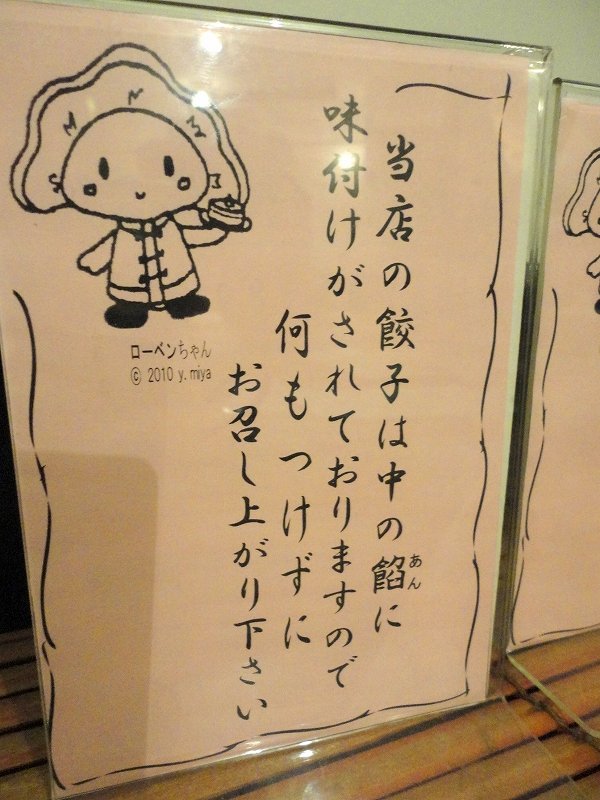 当店の餃子は中の餡に
あん
味付けがされておりますので
何もつけずに
お召し上がり下さい
ローペンちゃん
© 2010 y.miya